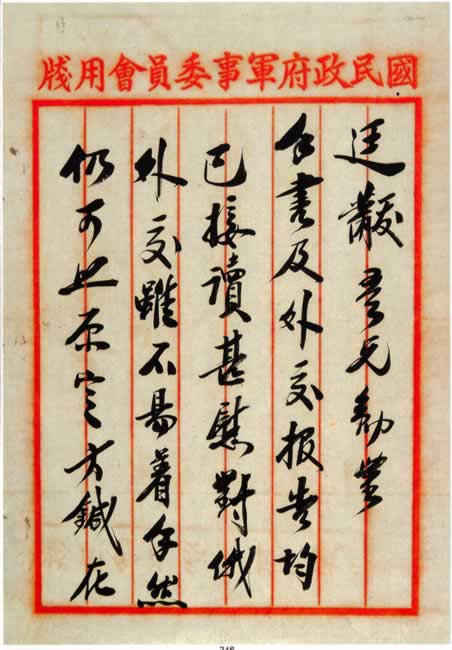 國民政府軍事委員會用牋
廷黻吾兄勳鑒
手書及外交報告均
已接讀甚慰對俄
外交雖不易着手然
仍可照原定方鍼在